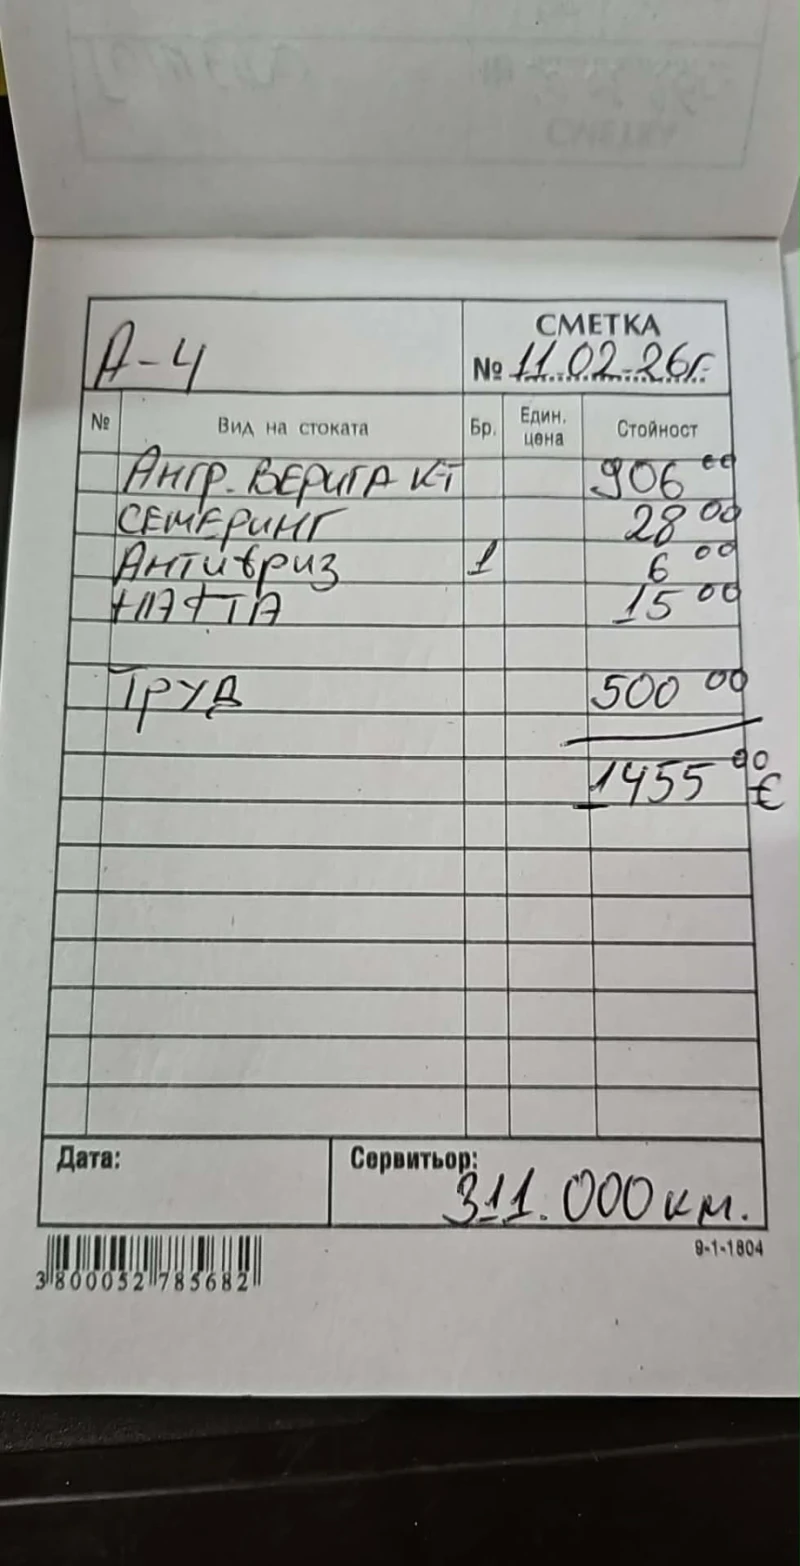 СМЕТКА
А-4
№ 11.02.26г.
№ Вид на стоката Бр. Един. цена Стойност
Ангр. ВЕРИГА К-Т 906 00
СЕМЕРИНГ 28 00
Антифриз 1 6 00
НАФТА 15 00
ТРУД 500 00
1455 00 €
Дата:
Сервитьор:
311.000 км.
9-1-1804
3 800052 785682